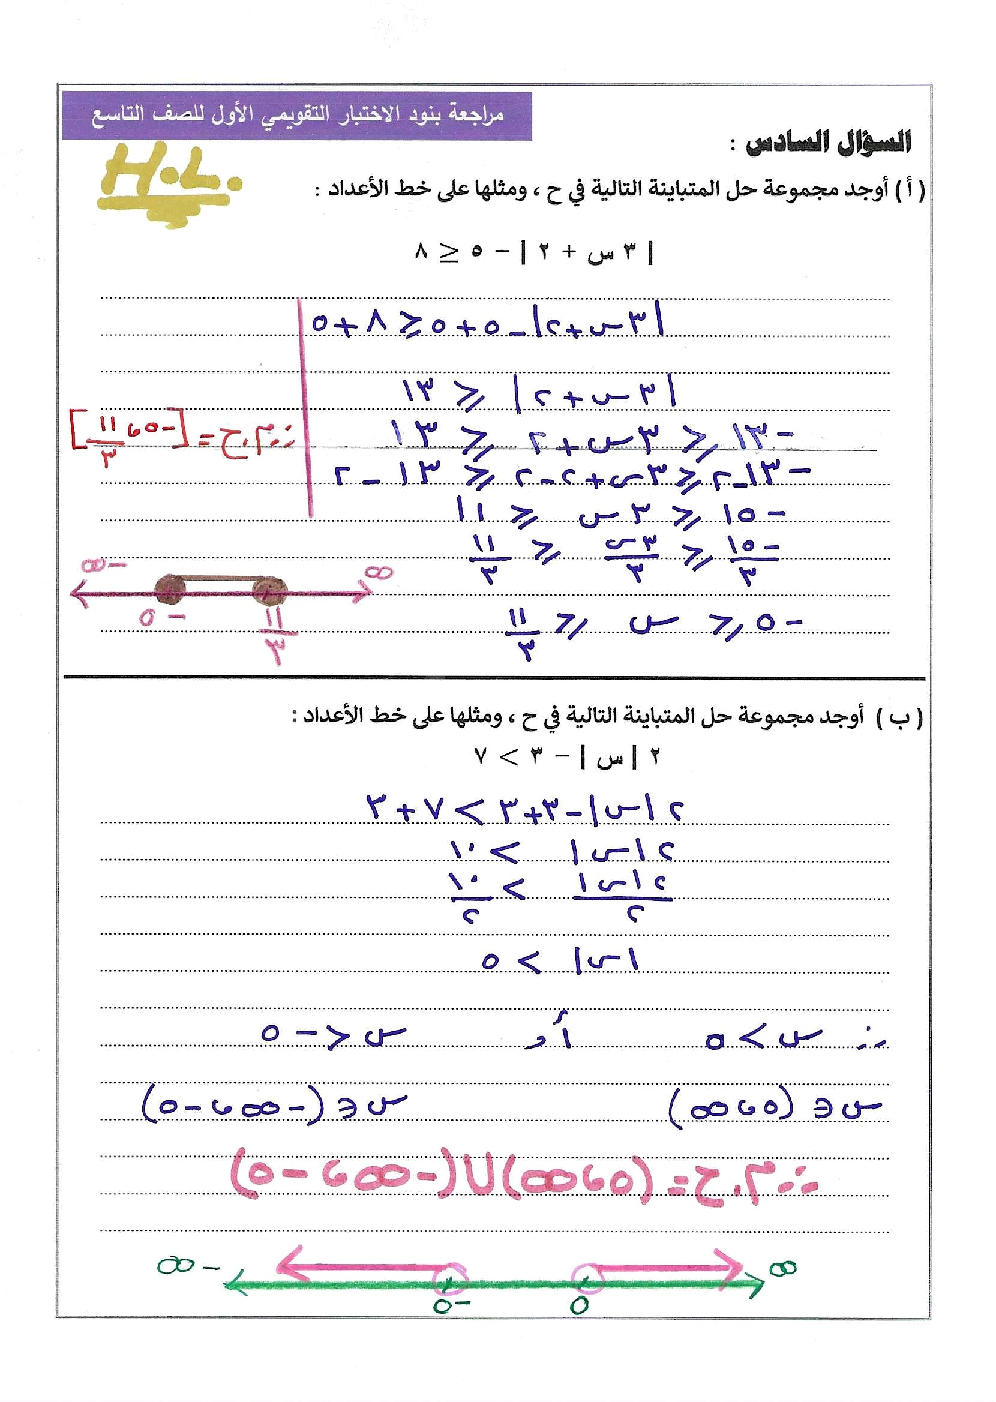 مراجعة بنود الاختبار التقويمي الأول للصف التاسع
السؤال السادس :
H.L.
( أ ) أوجد مجموعة حل المتباينة التالية في ح ، ومثلها على خط الأعداد :
| ٣ س + ٢ | − ٥ ≤ ٨
|٣س+٢| −٥+٥ ≤ ٨+٥
|٣س+٢| ≤ ١٣
−١٣ ≤ ٣س+٢ ≤ ١٣
−١٣−٢ ≤ ٣س+٢−٢ ≤ ١٣−٢
−١٥ ≤ ٣س ≤ ١١
−١٥/٣ ≤ ٣س/٣ ≤ ١١/٣
−٥ ≤ س ≤ ١١/٣
∴ م.ح = [−٥ ، ١١/٣]
∞ −∞
١١/٣ −٥
( ب ) أوجد مجموعة حل المتباينة التالية في ح ، ومثلها على خط الأعداد :
٢ | س | − ٣ > ٧
٢|س| −٣+٣ > ٧+٣
٢|س| > ١٠
٢|س|/٢ > ١٠/٢
|س| > ٥
∴ س > ٥ أو س < −٥
س ∈ (٥ ، ∞) س ∈ (−∞ ، −٥)
∴ م.ح = (٥ ، ∞) ∪ (−∞ ، −٥)
∞ −∞
٥ −٥